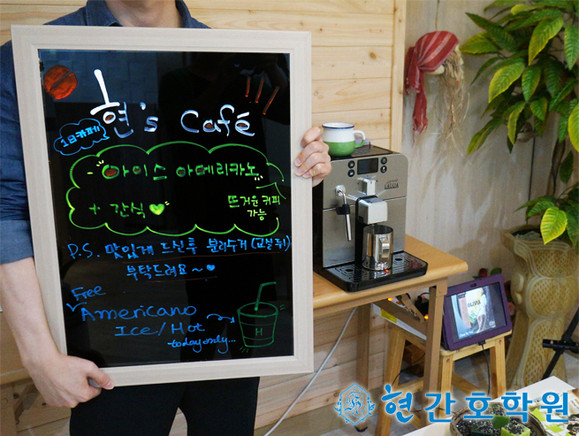 현's Café
1日카페
- 아이스 아메리카노
+ 간식
뜨거운 커피
가능
P.S. 맛있게 드신후 분리수거 (교실 뒤!)
부탁드려요~
Free
Americano
Ice/Hot
today only...
H
현간호학원